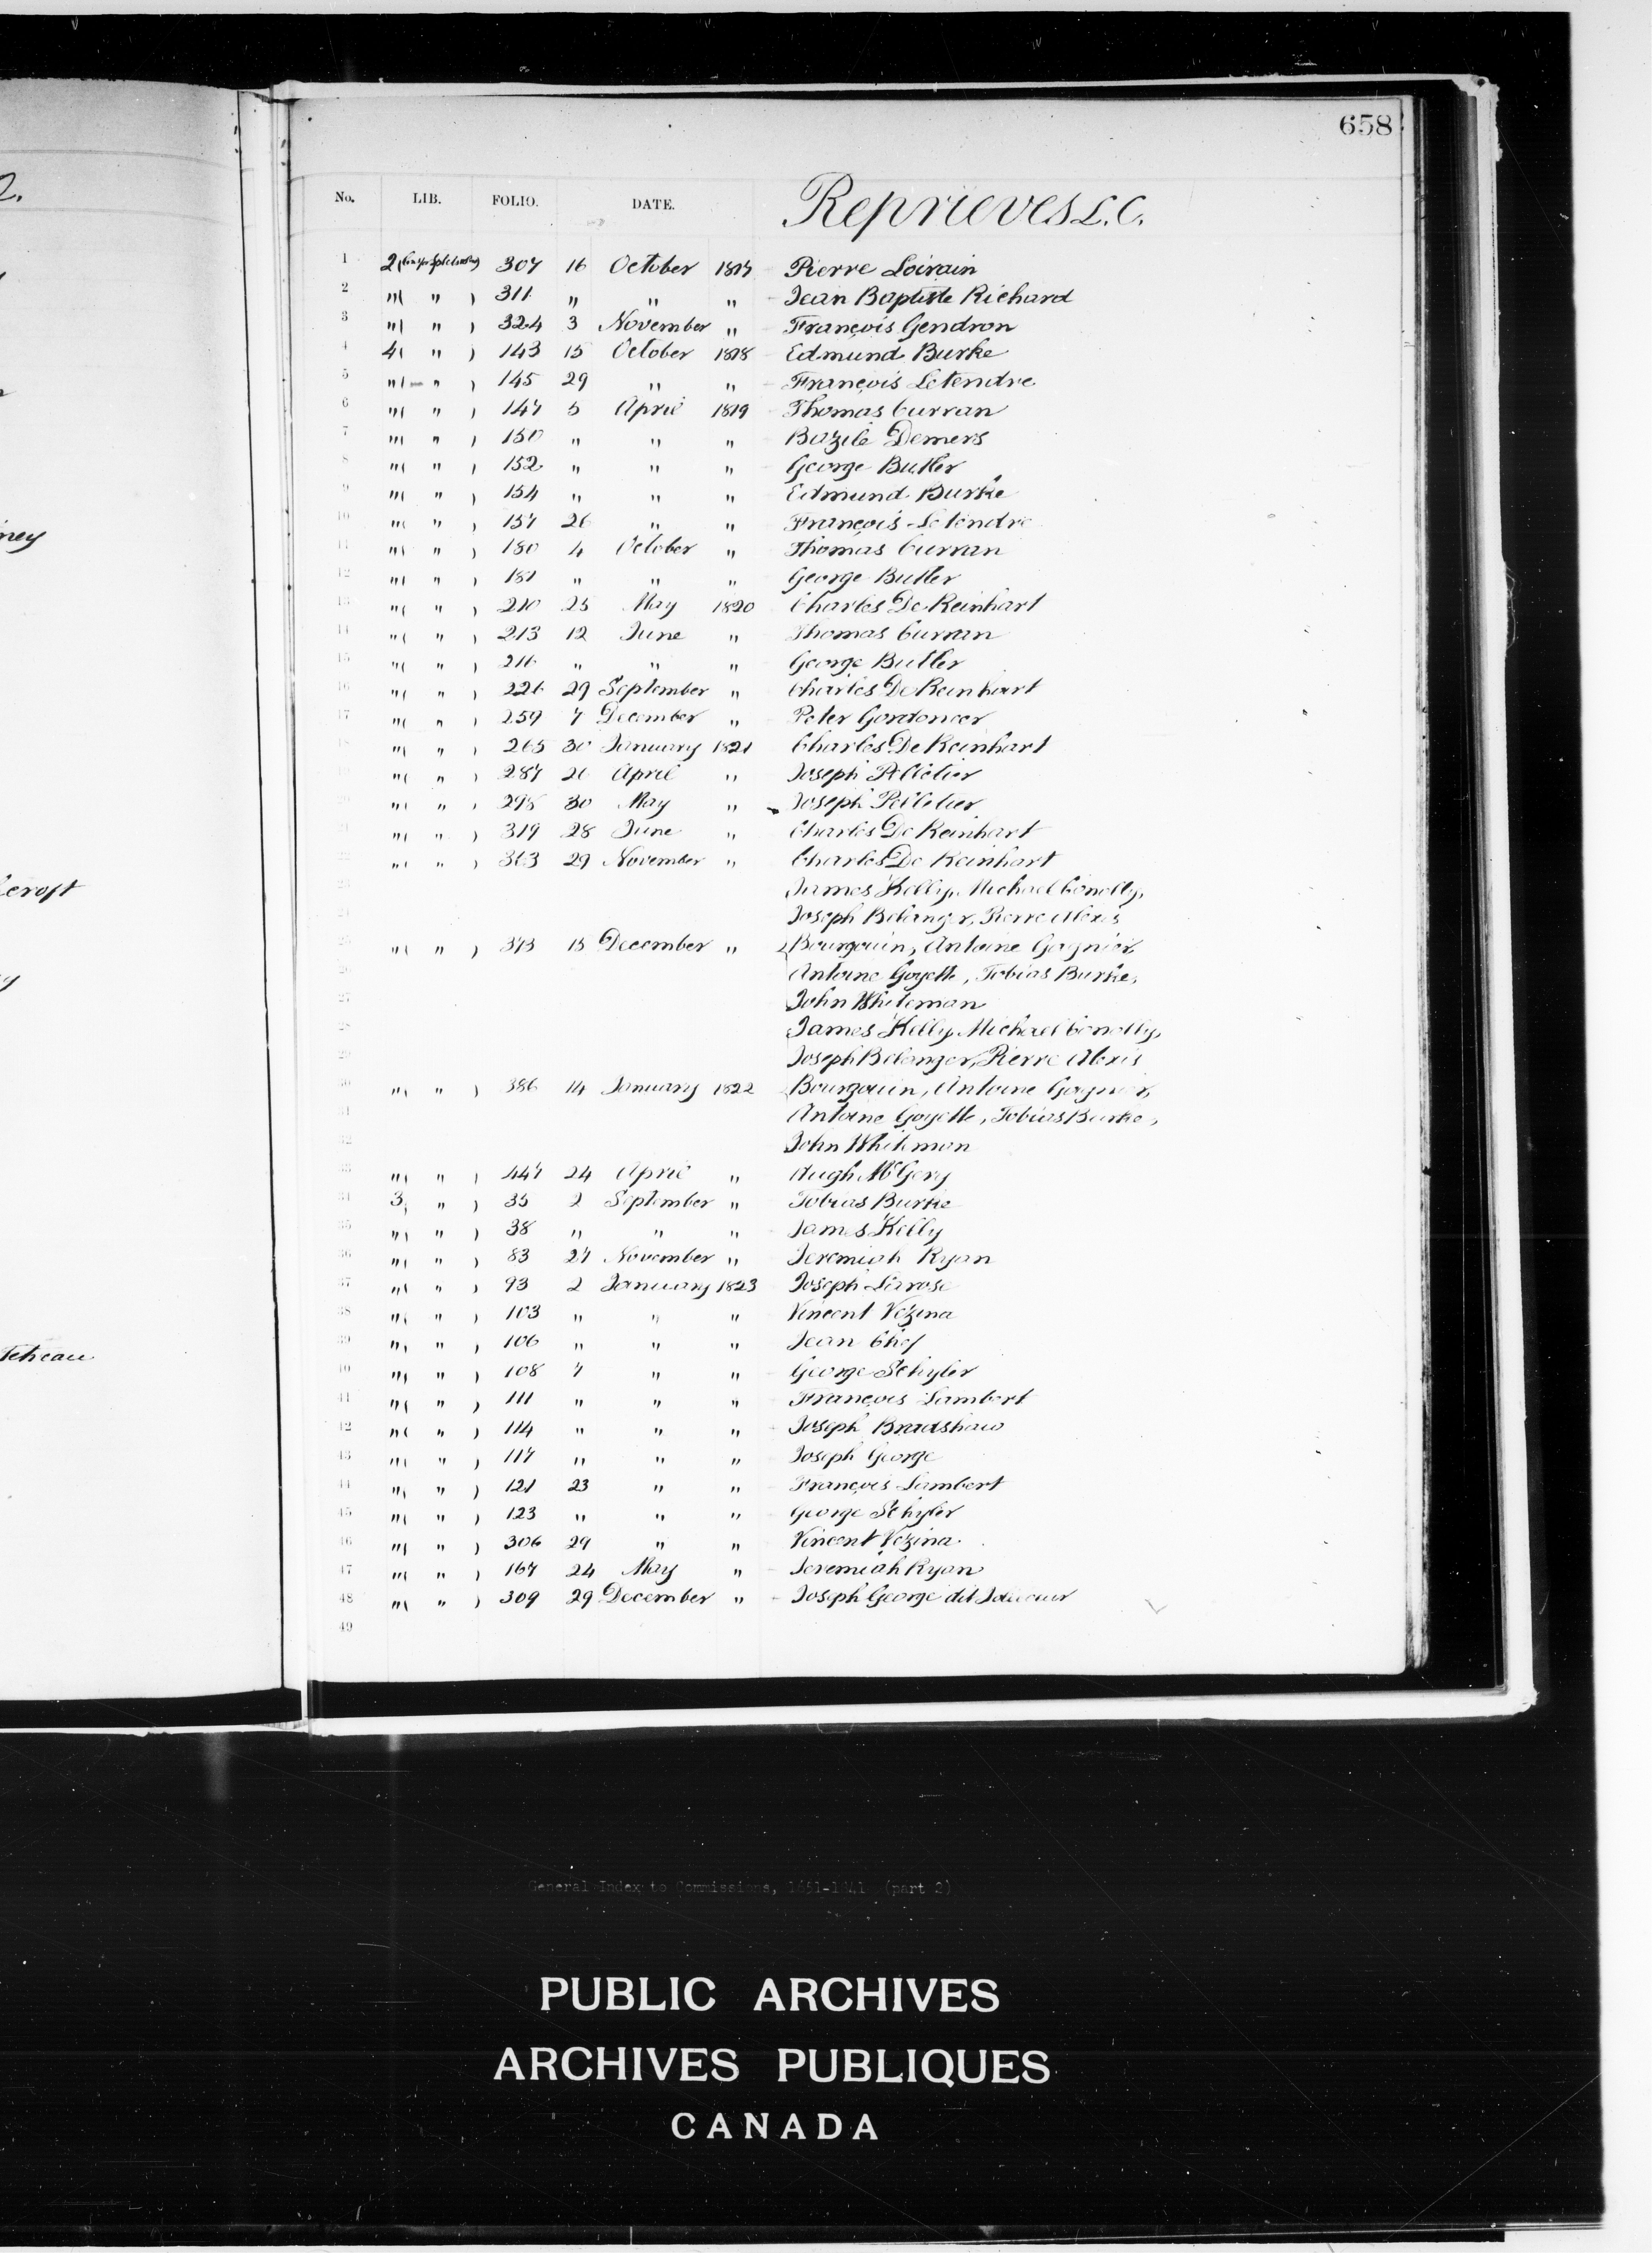 2.
658
No. LIB. FOLIO. DATE. Reprieves L.C.
1 2 ( ) 307 16 October 1817 Pierre Loirain
2 "( " ) 311 " " " Jean Baptiste Richard
3 "( " ) 324 3 November " François Gendron
4 4( " ) 143 15 October 1818 Edmund Burke
5 "( " ) 145 29 " " François Letendre
6 "( " ) 147 5 April 1819 Thomas Curran
7 "( " ) 150 " " " Bazile Demers
8 "( " ) 152 " " " George Butler
9 "( " ) 154 " " " Edmund Burke
10 "( " ) 157 26 " " François Letendre
11 "( " ) 180 4 October " Thomas Curran
12 "( " ) 181 " " " George Butler
13 "( " ) 210 25 May 1820 Charles De Reinhart
14 "( " ) 213 12 June " Thomas Curran
15 "( " ) 216 " " " George Butler
16 "( " ) 226 29 September " Charles De Reinhart
17 "( " ) 259 7 December " Peter Gordoncer
18 "( " ) 265 30 January 1821 Charles De Reinhart
19 "( " ) 287 26 April " Joseph Pelletier
20 "( " ) 298 30 May " Joseph Pelletier
21 "( " ) 319 28 June " Charles De Reinhart
22 "( " ) 363 29 November " Charles De Reinhart
23 James Kelly, Michael Conolly,
24 Joseph Belanger, Pierre Alexis
25 "( " ) 373 15 December " Bourgouin, Antoine Gagnier,
26 Antoine Goyette, Tobias Burke,
27 John Whiteman
28 James Kelly, Michael Conolly,
29 Joseph Belanger, Pierre Alexis
30 "( " ) 386 14 January 1822 Bourgouin, Antoine Gagnier,
31 Antoine Goyette, Tobias Burke,
32 John Whiteman
33 "( " ) 447 24 April " Hugh McGery
34 3( " ) 35 2 September " Tobias Burke
35 "( " ) 38 " " " James Kelly
36 "( " ) 83 27 November " Jeremiah Ryan
37 "( " ) 93 2 January 1823 Joseph Larose
38 "( " ) 103 " " " Vincent Vezina
39 "( " ) 106 " " " Jean Chef
40 "( " ) 108 7 " " George Schyler
41 "( " ) 111 " " " François Lambert
42 "( " ) 114 " " " Joseph Bradshaw
43 "( " ) 117 " " " Joseph George
44 "( " ) 121 23 " " François Lambert
45 "( " ) 123 " " " George Schyler
46 "( " ) 306 29 " " Vincent Vezina
47 "( " ) 167 24 May " Jeremiah Ryan
48 "( " ) 309 29 December " Joseph George dit
49
General Index to Commissions, 1651-1841 (part 2)
PUBLIC ARCHIVES
ARCHIVES PUBLIQUES
CANADA